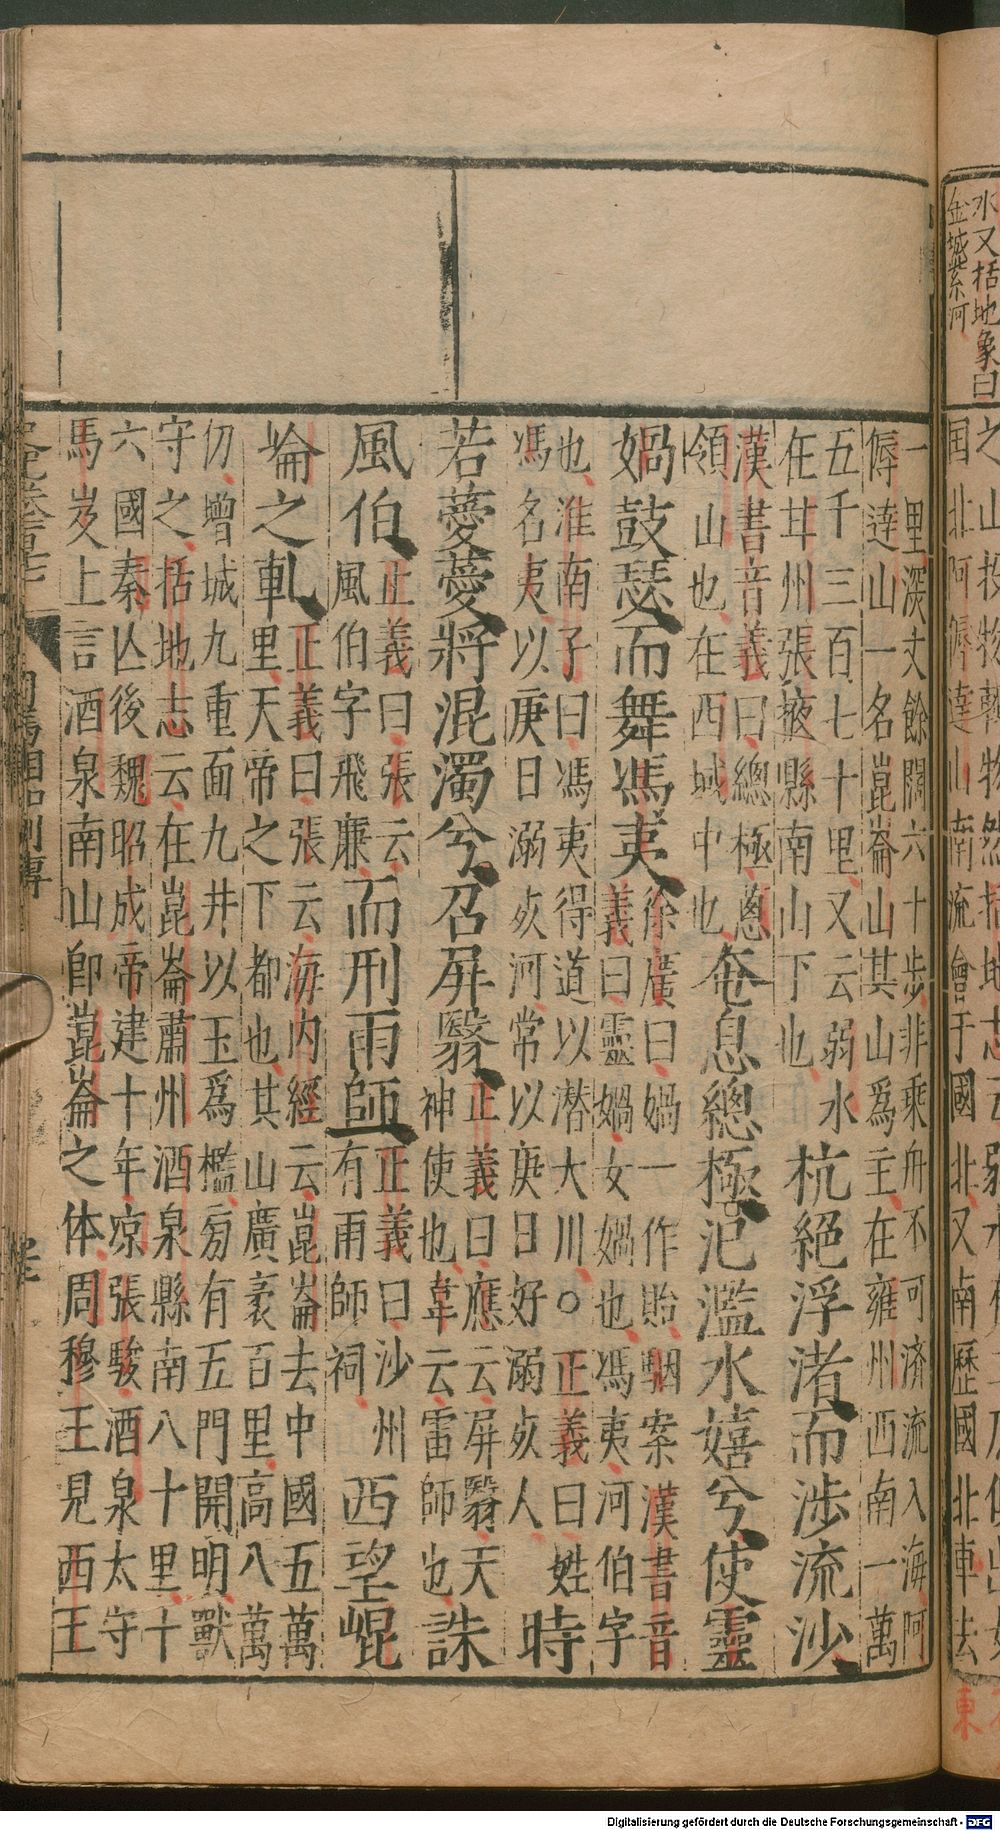 水又括地象曰
金城紫河
一里深丈餘闊六十步非乗舟不可済流入海阿
傉達山一名崑崙山其山爲主在雍州西南一萬
五千三百七十里又云弱水
在甘州張掖縣南山下也
杭絕浮渚而涉流沙
漢書音義曰總極蔥
領山也在西域中也
奄息總極氾濫水嬉兮使靈
媧鼓瑟而舞馮夷
徐廣曰媧一作貽駰案漢書音
義曰靈媧女媧也馮夷河伯字
也淮南子曰馮夷得道以潜大川○正義曰姓
馮名夷以庚日溺死河常以庚日好溺死人
時
若薆薆將混濁兮召屏翳
正義曰應云屏翳天
神使也韋云雷師也
誅
風伯
正義曰張云
風伯字飛廉
而刑雨師
正義曰沙州
有雨師祠
西望崐
崘之軋
正義曰張云海内經云崑崙去中國五萬
里天帝之下都也其山廣袤百里高八萬
仞增城九重面九井以玉爲檻旁有五門開明獸
守之括地志云在崑崙肅州酒泉縣南八十里十
六國秦亾後魏昭成帝建十年凉張駿酒泉太守
馬岌上言酒泉南山卽崑崙之体周穆王見西王
司馬相如列傳
之山
国北阿傉達山南流會于國北又南歷國北車法
東
Digitalisierung gefördert durch die Deutsche Forschungsgemeinschaft - DFG